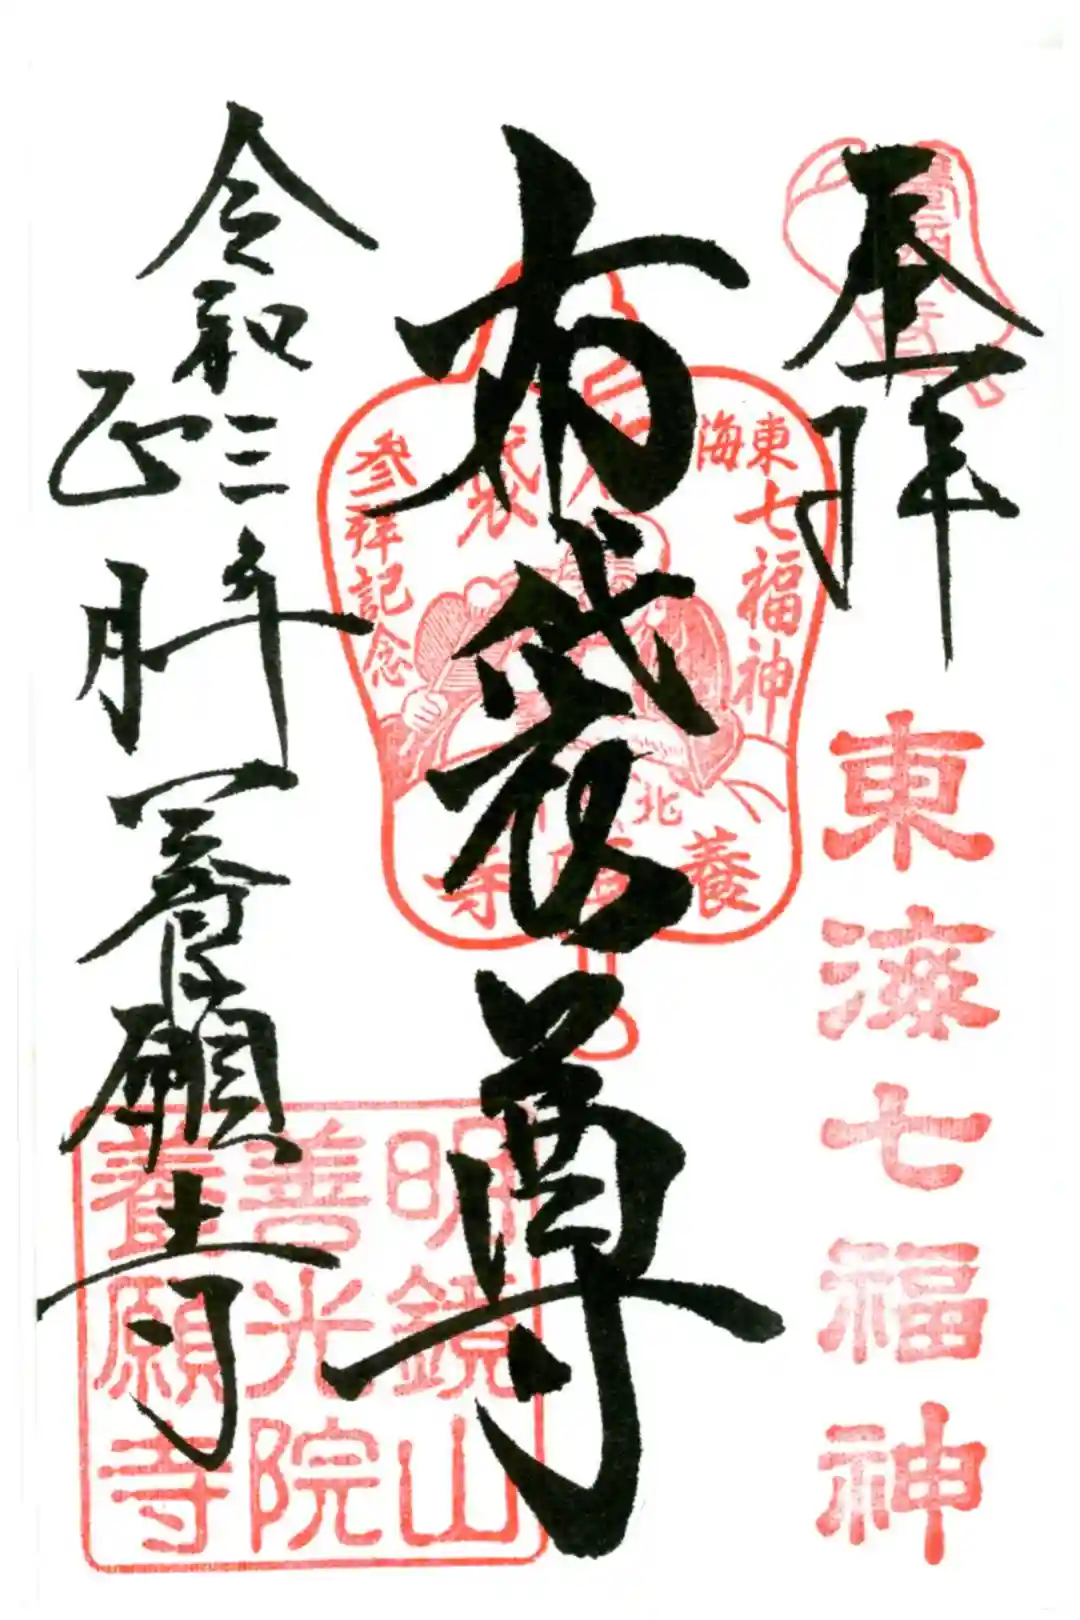 奉拝
東海七福神
布袋尊
東海
七福神
布袋
参拝記念
北品川
養願寺
令和三年
正月
養願寺
明鏡山
善光院
養願寺